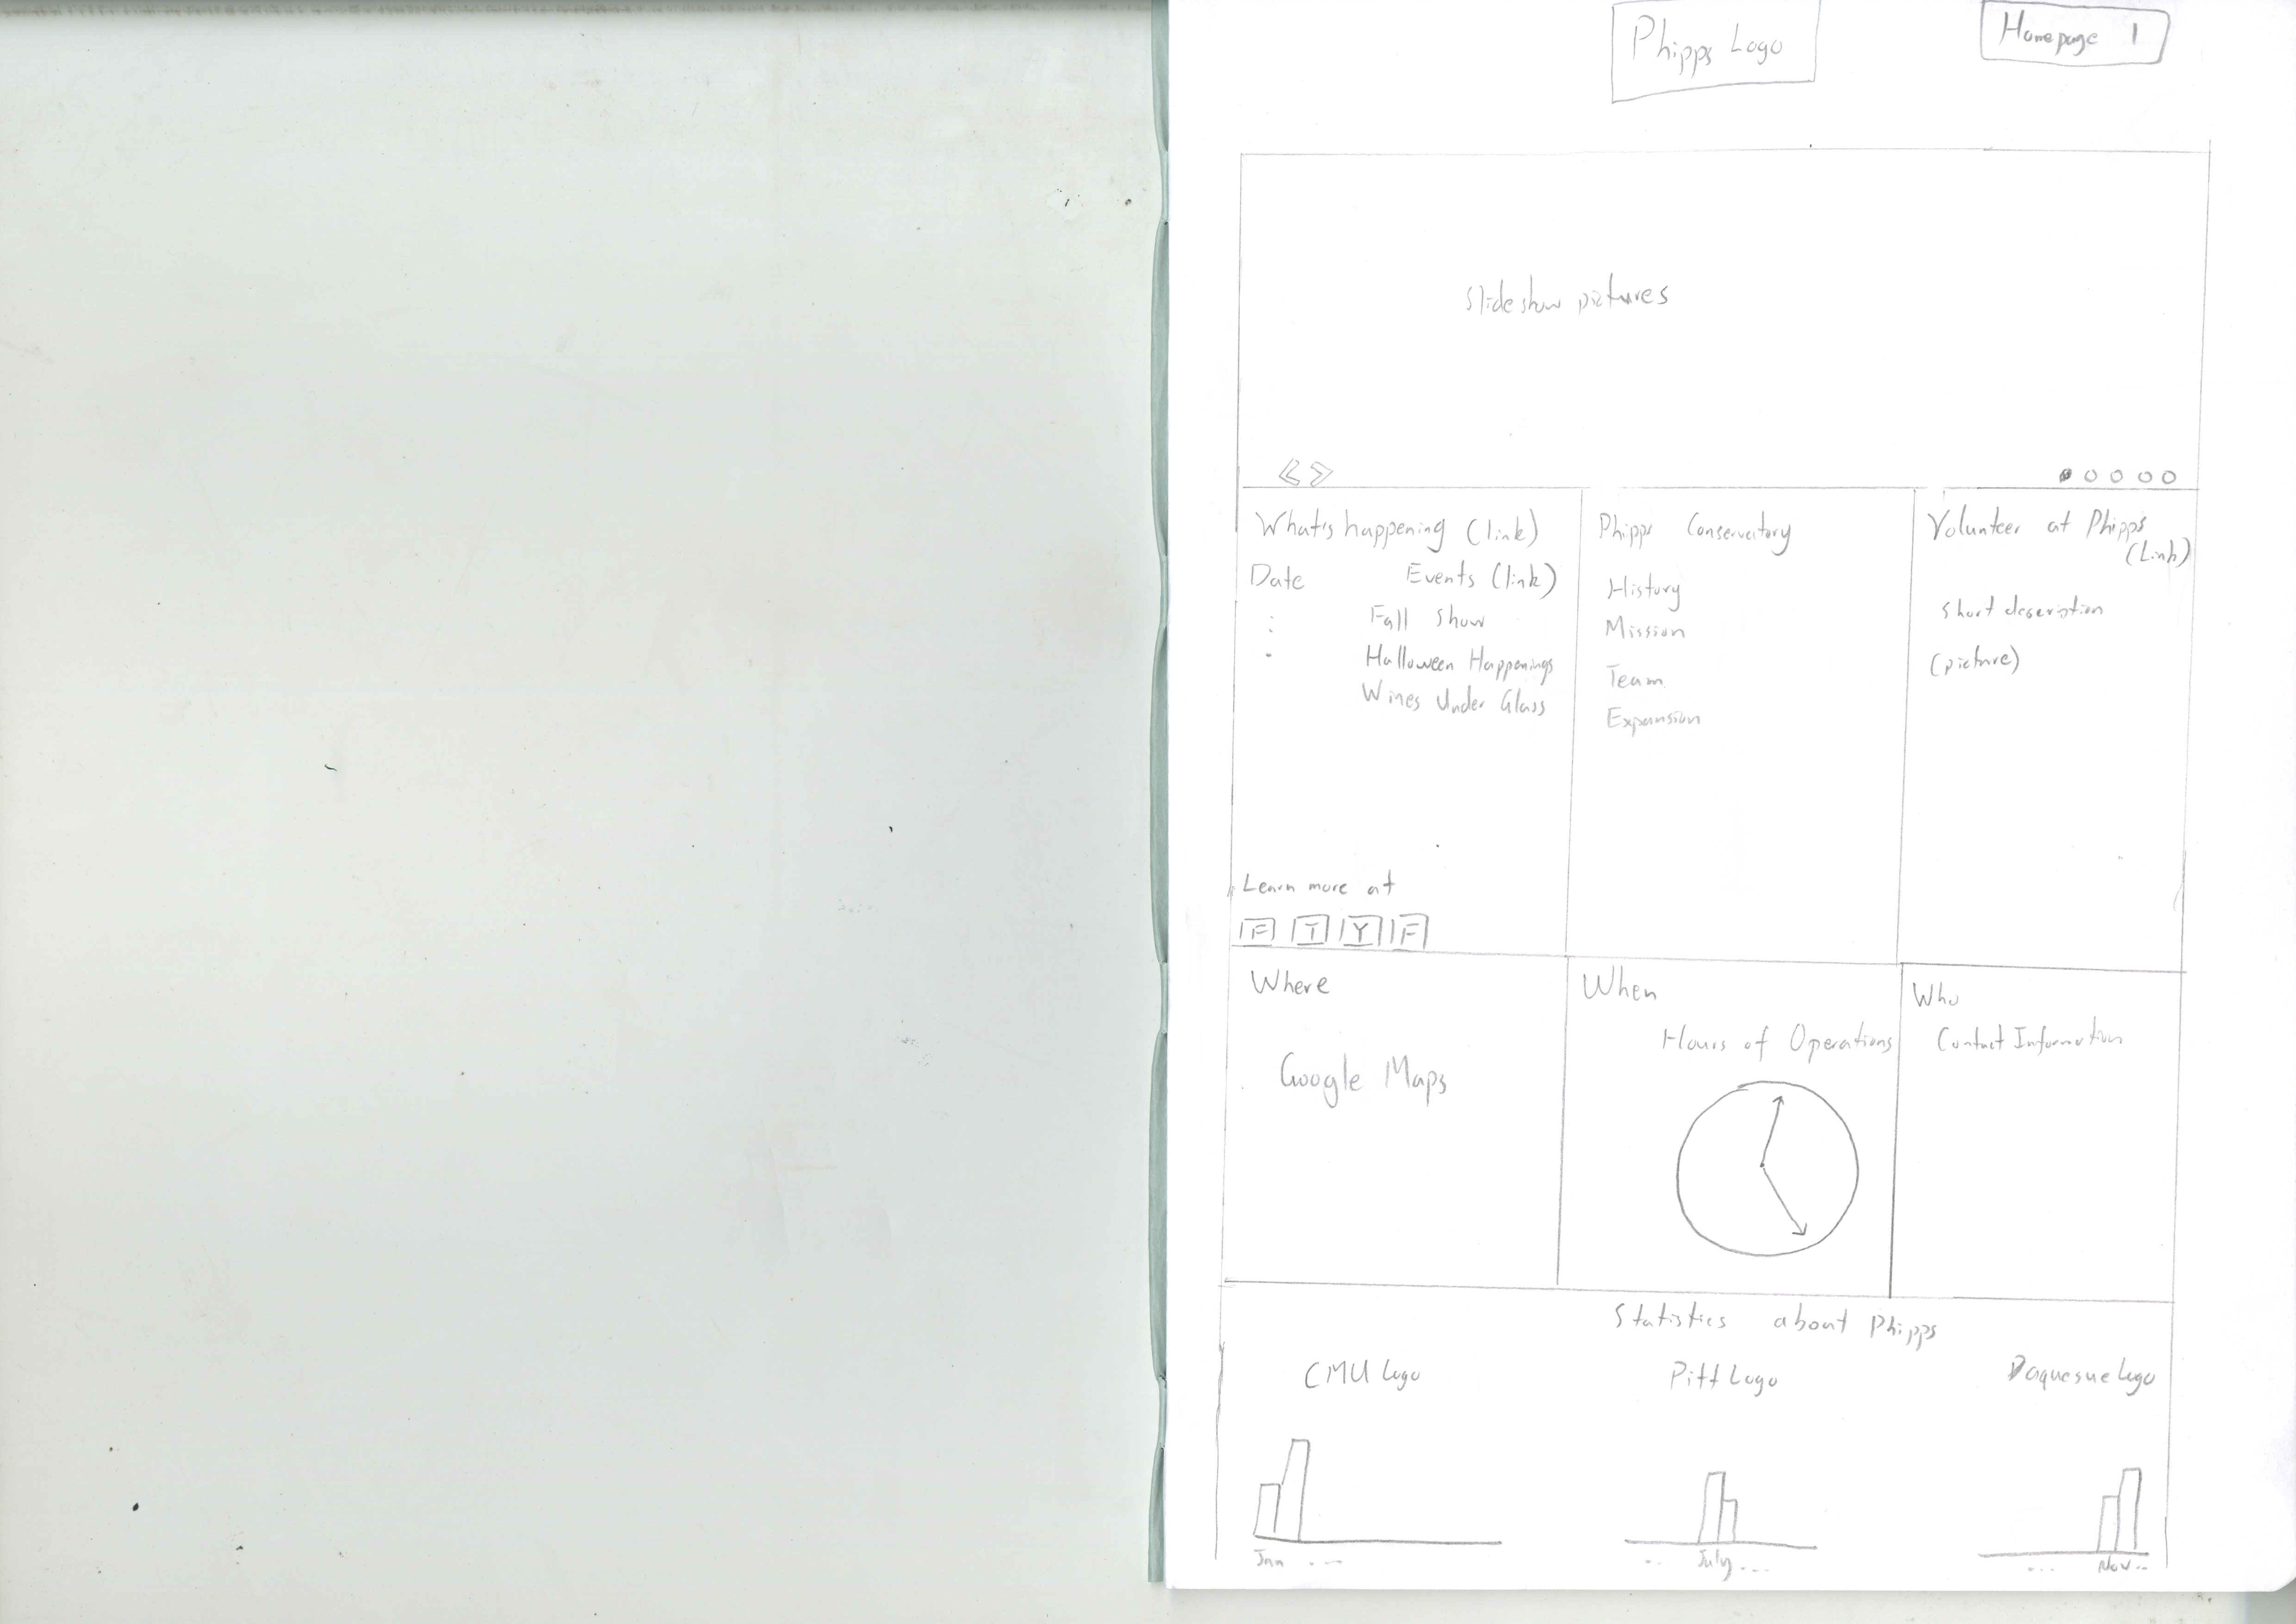 Phipps Logo
Homepage 1
Slideshow pictures
What's happening (link)
Date Events (link)
Fall Show
Halloween Happenings
Wines Under Glass
Learn more at
F T Y F
Phipps Conservatory
History
Mission
Team
Expansion
Volunteer at Phipps
(Link)
Short description
(picture)
Where
Google Maps
When
Hours of Operations
Who
Contact Information
Statistics about Phipps
CMU Logo
Pitt Logo
Duquesne Logo
Jan
July
Nov